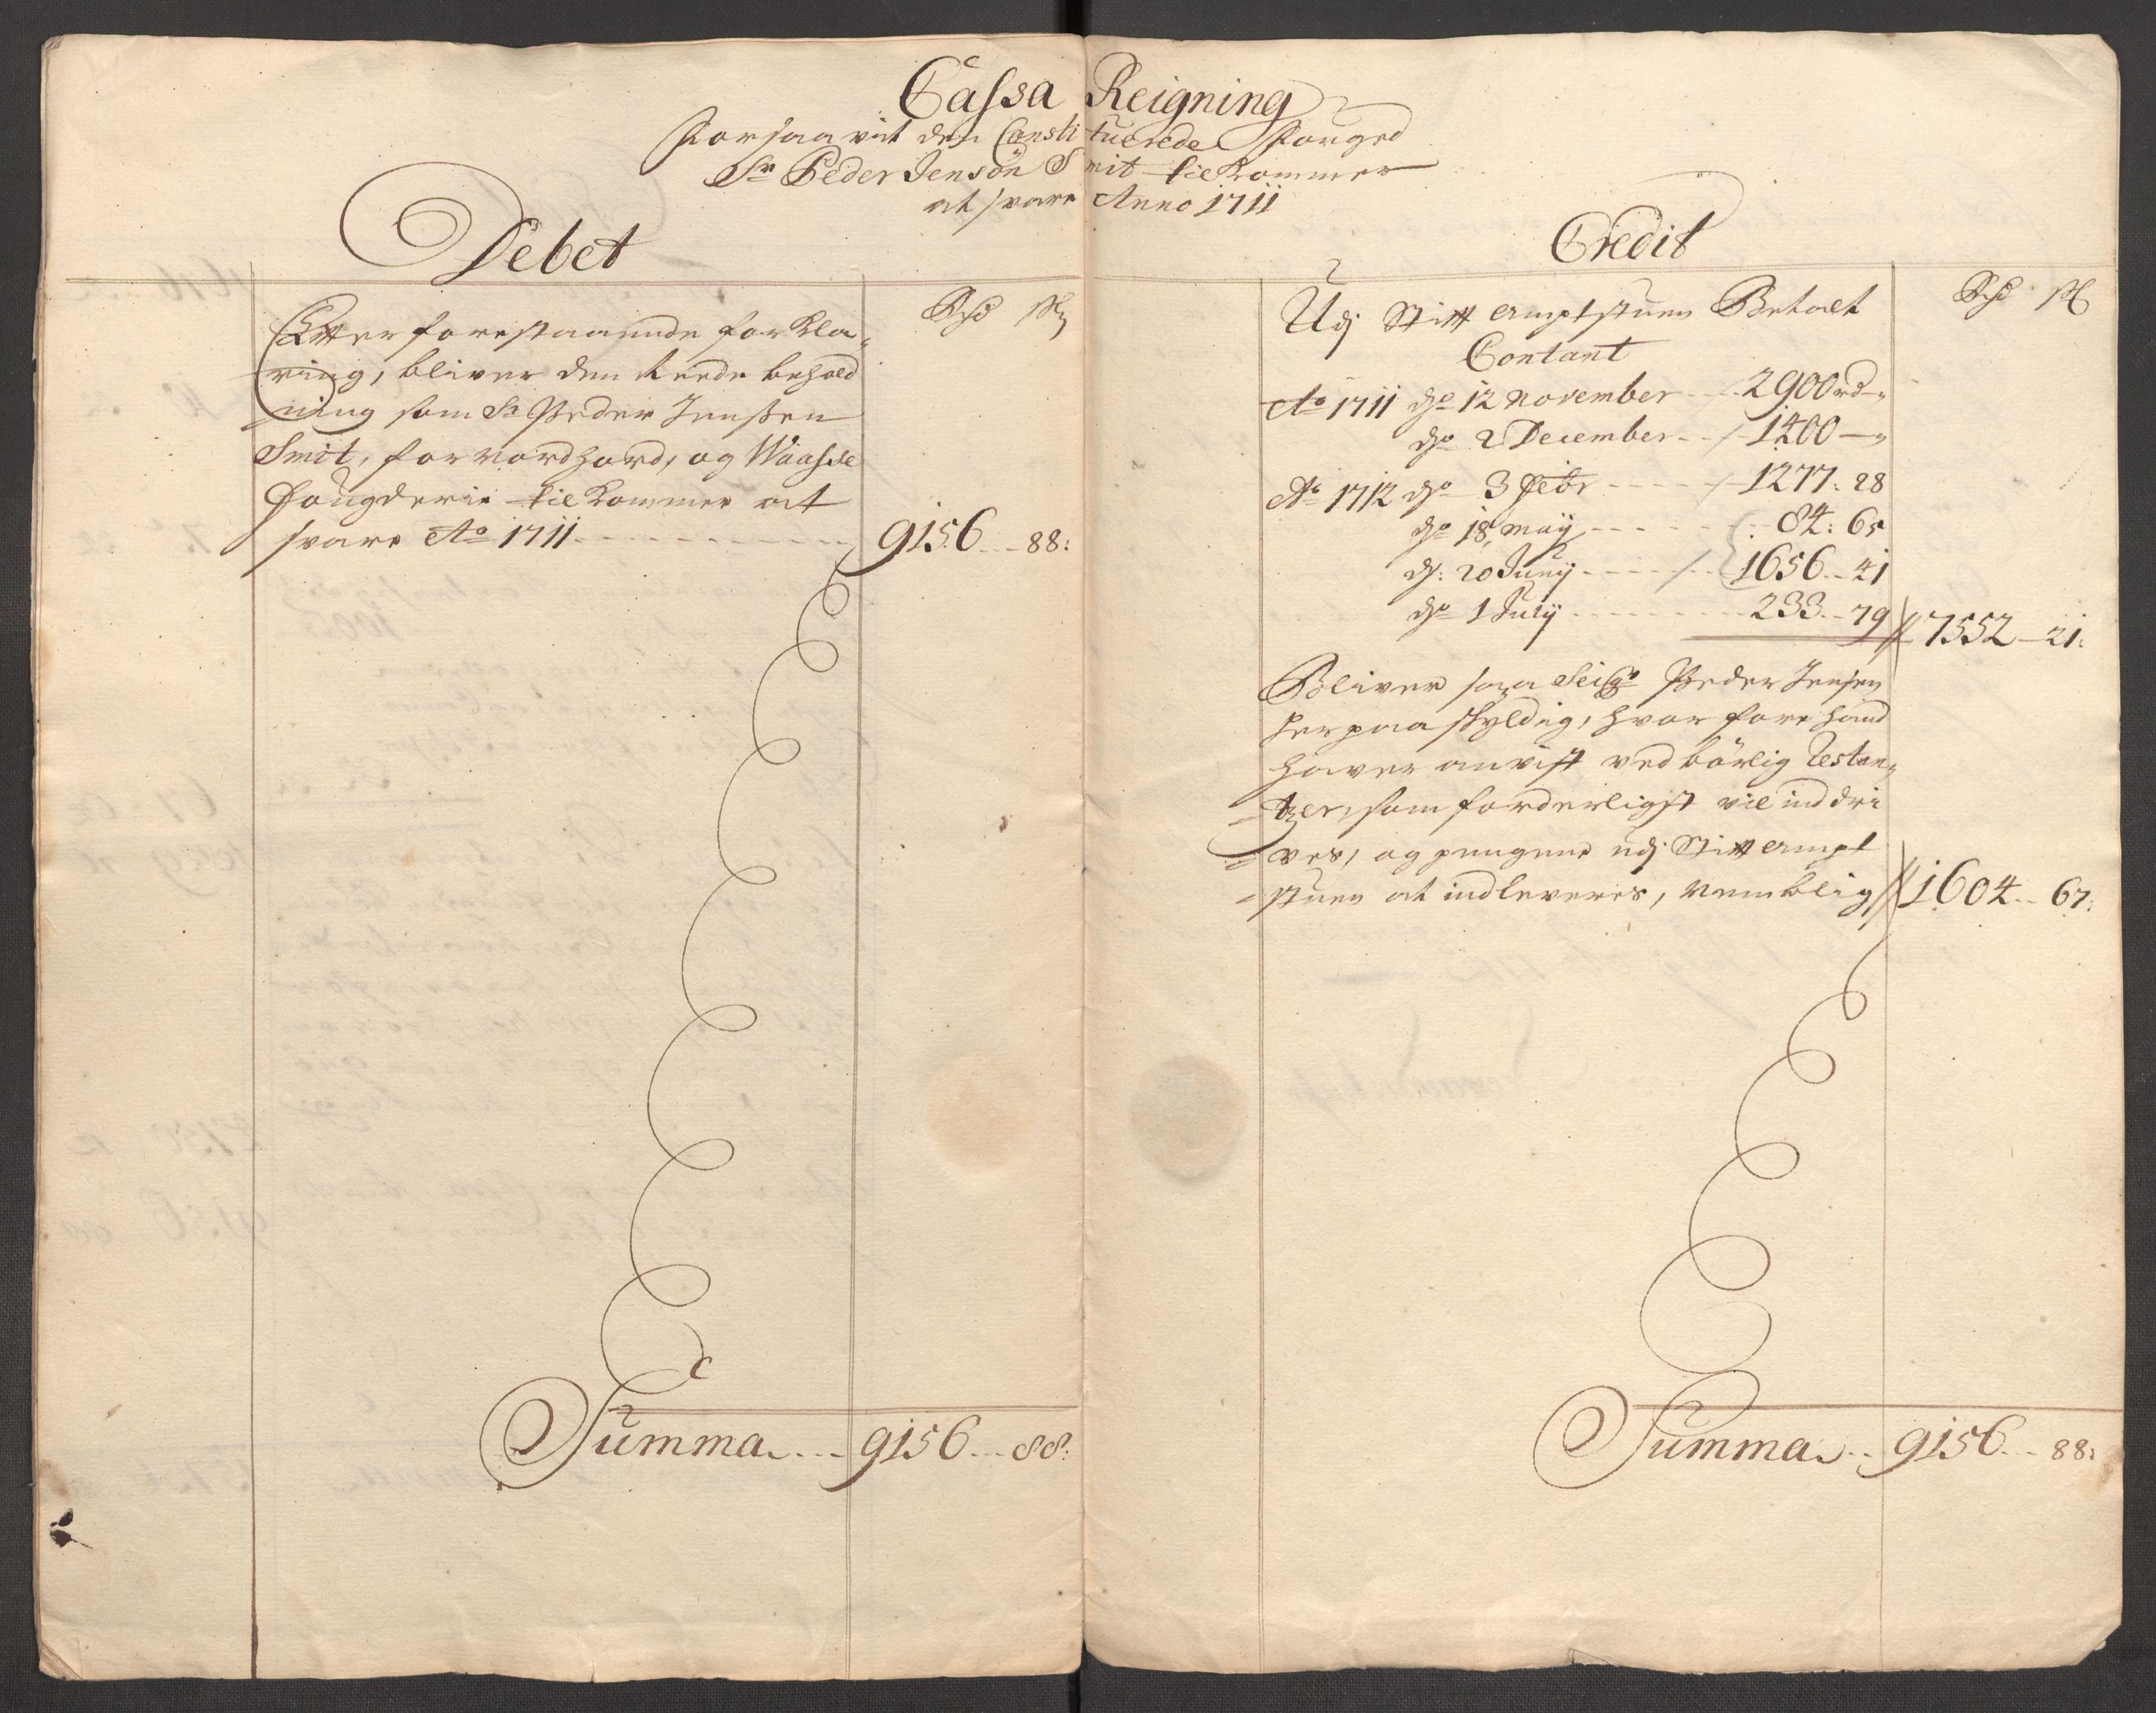 Cassa Reigning
Forsaavit den Constituerede Fouged
Sr Peder Jensøn Smit tilkommer
at svare Anno 1711
Debet
Rd s
Efter forestaaende forkla„
ring, bliver den Reede behold
ning som Sr Peder Jenssen
Smit, for Nordhord, og Waasse
Fougderie tilkommer at
svare Ao 1711 9156 88:
Summa 9156 88:
Credit
Rd s
Udj Stift amptstuen Betalt
Contant
Ao 1711 dn 12 November 2900 rd „
dn 2 December 1400 „
Ao 1712 dn 3 Febr 1277. 28
dn 18 Maij 84: 65
d: 20 Junij 1656 41
dn 1 Julij 233 79 7552 21:
Bliver saa Seigr Peder Jensen
herpaa skyldig, hvor fore hand
haver anvist ved børlig Restan„
tzer, som forderligst vil inddri
ves, og pengene udj Stift ampt
stuen at indleveres, Nemblig 1604 67:
Summa 9156 88: